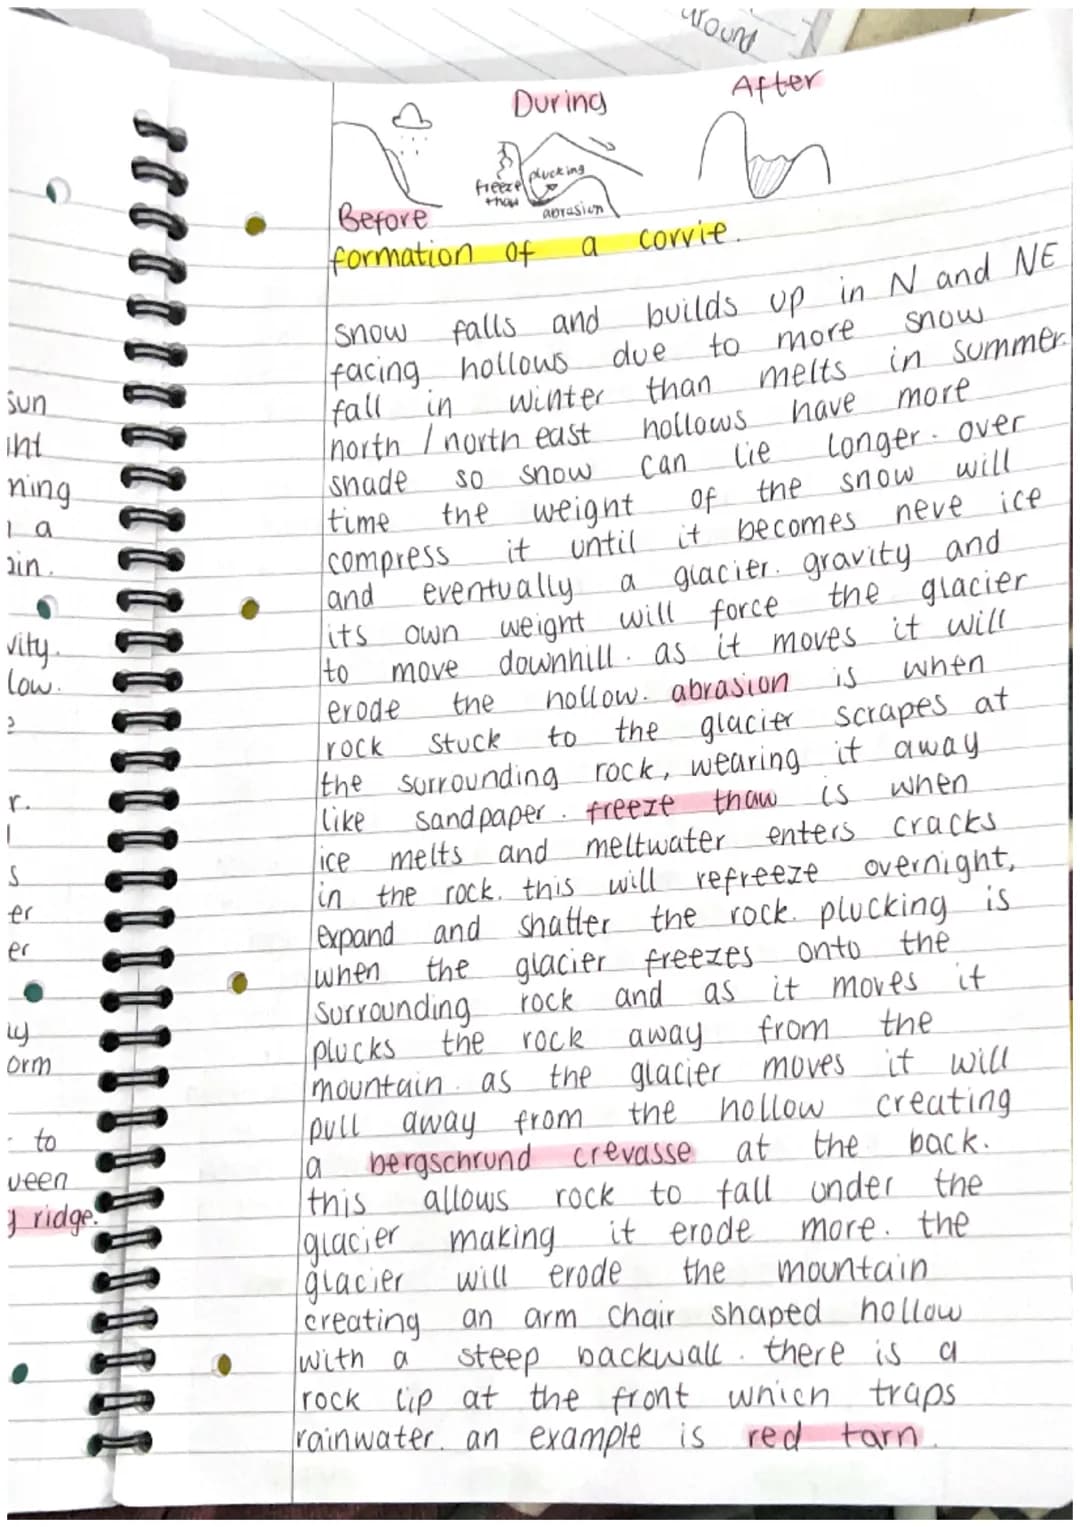 around
During
After
plucking
freeze
thaw
abrasion
Before
formation of a corrie.
snow falls and builds up in N and NE
facing hollows due to more snow
fall in winter than melts in summer.
north / north east hollows have more
shade so snow can lie longer. over
time the weight of the snow will
compress it until it becomes neve ice
and eventually a glacier. gravity and
its own weight will force the glacier
to move downhill. as it moves it will
erode the hollow. abrasion is when
rock stuck to the glacier scrapes at
the surrounding rock, wearing it away
like sandpaper. freeze thaw is when
ice melts and meltwater enters cracks
in the rock. this will refreeze overnight,
expand and shatter the rock. plucking is
when the glacier freezes onto the
surrounding rock and as it moves it
plucks the rock away from the
mountain. as the glacier moves it will
pull away from the hollow creating
a bergschrund crevasse at the back.
this allows rock to fall under the
glacier making it erode more. the
glacier will erode the mountain
creating an arm chair shaped hollow
with a steep backwall. there is a
rock lip at the front which traps
rainwater. an example is red tarn.
sun
ning
a
low.
r.
s
er
er
orm
to
ridge.